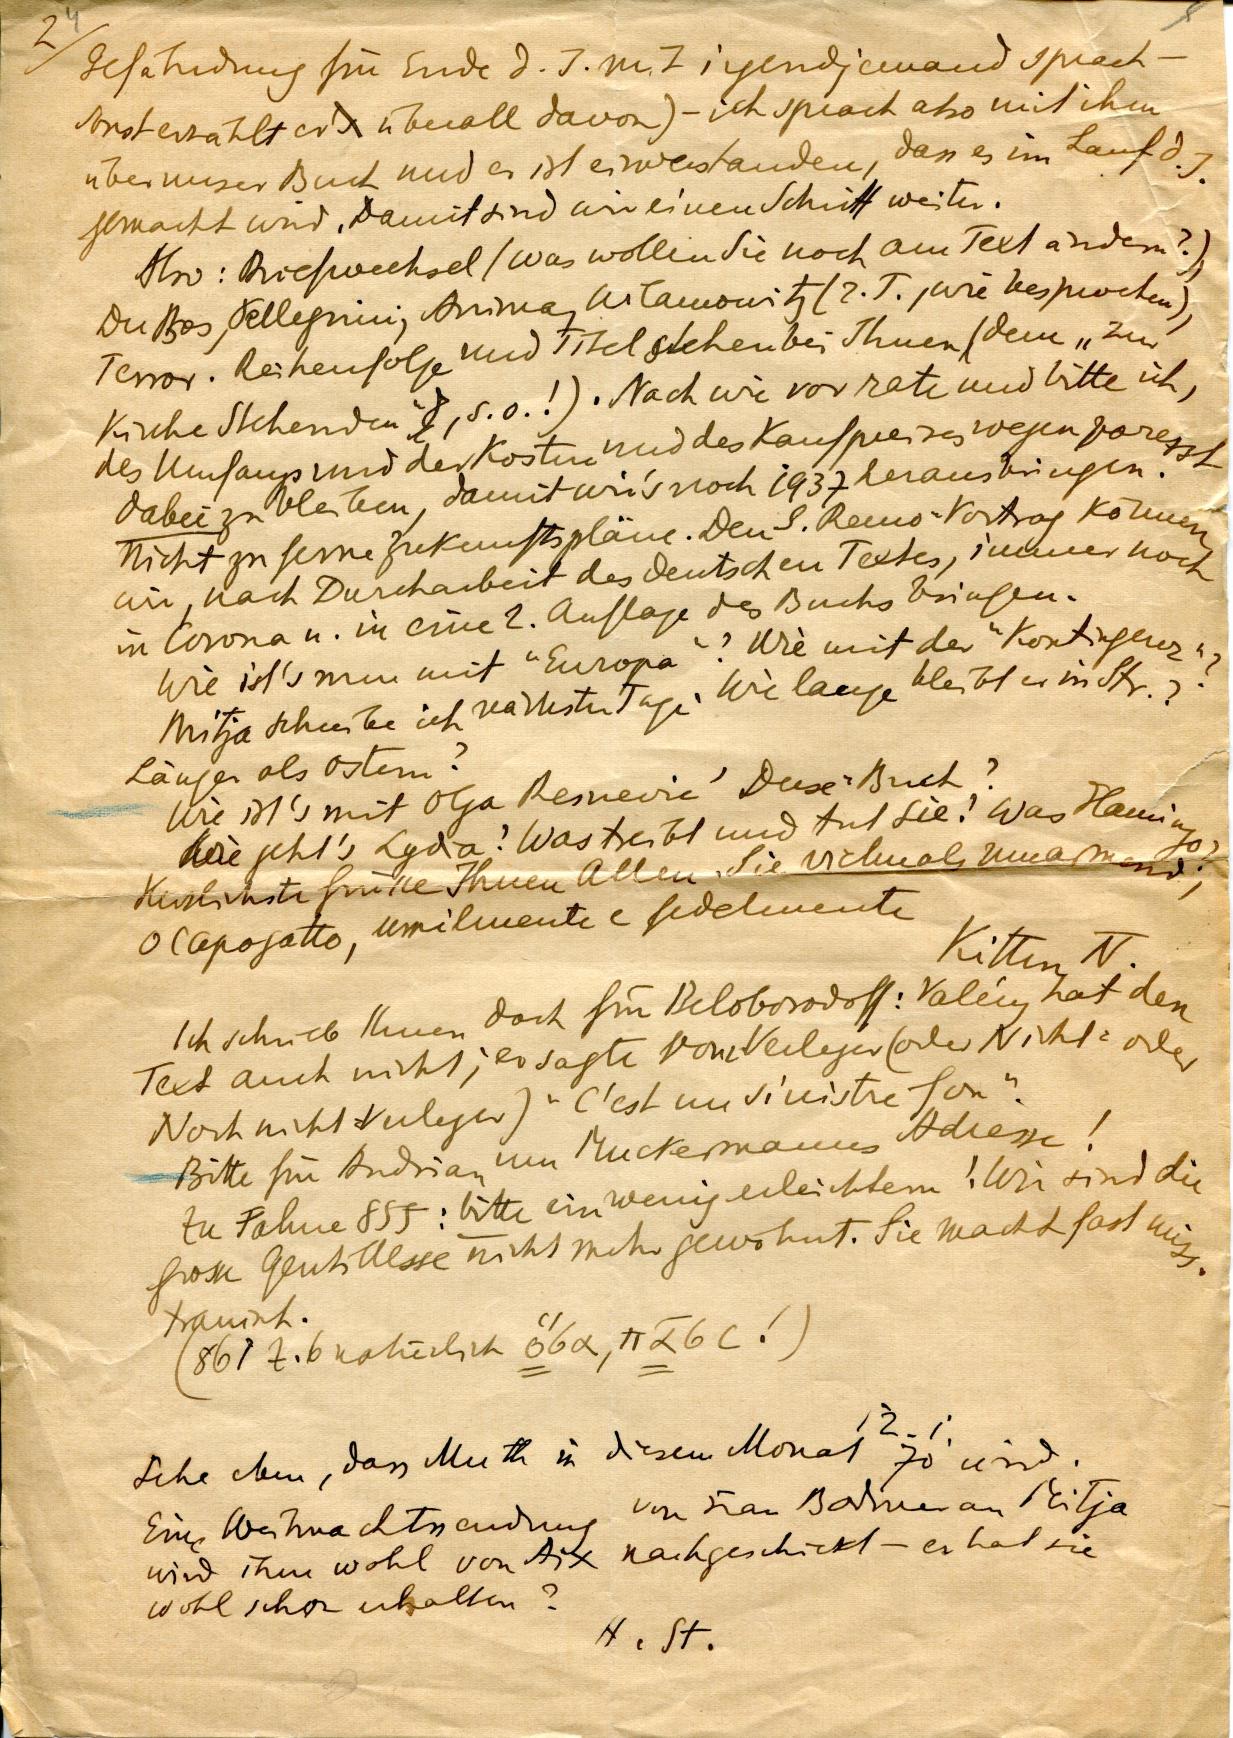 2/
Gefährdung für Ende d. J. mit irgendjemand sprach –
sonst erzählt er's überall davon) – ich sprach also mit ihm
über unser Buch und er ist einverstanden, dass es im Lauf d. J.
gemacht wird. Damit sind wir einen Schritt weiter.
Also: Briefwechsel (was wollen Sie noch am Text ändern?),
Du Bos, Pellegrini, Anima, Wilamowitz (z. T., wie besprochen),
Terror. Reihenfolge und Titel stehen bei Ihnen (dem „zur
Kirche Stehenden“, s. o.!). Nach wie vor rate und bitte ich,
des Umfangs und der Kosten und des Kaufpreises wegen
dabei zu bleiben, damit wir's noch 1937 herausbringen.
Nicht zu ferne Zukunftspläne. Den S. Remo-Vortrag können
wir, nach Durcharbeit des deutschen Textes, immer noch
in Corona u. in eine 2. Auflage des Buchs bringen.
Wie ist's nun mit "Europa"? Wie mit der "Kontingenz"?
Mitja schreibe ich nächster Tage. Wie lange bleibt er in Str.?
Länger als Ostern?
Wie ist's mit Olga Resnevic' Duse-Buch?
Wie geht's Lydia? Was treibt und tut Sie? Was Flamingo?
Herzlichste Grüsse Ihnen Allen. Sie vielmals umarmend,
O Capogatto, umilmente e fedelmente
Kitten N.
Ich schrieb Ihnen doch für Beloborodoff: Valéry hat den
Text auch nicht; er sagte vom Verleger (oder Nicht- oder
Noch nicht Verleger) "C'est un sinistre fou".
Bitte für Andrian um Muckermanns Adresse!
Zu Fahne 855: bitte ein wenig erleichtern! Wir sind die
grosse Gentillesse nicht mehr gewohnt. Sie macht fast miss-
trauisch.
(861 z. b natürlich
Sehe eben, dass Muth in diesem Monat 70 wird.
Eine Weihnachtssendung von Frau Bodmer an Mitja
wird ihm wohl von Aix nachgeschickt – er hat sie
wohl schon erhalten?
H. St.